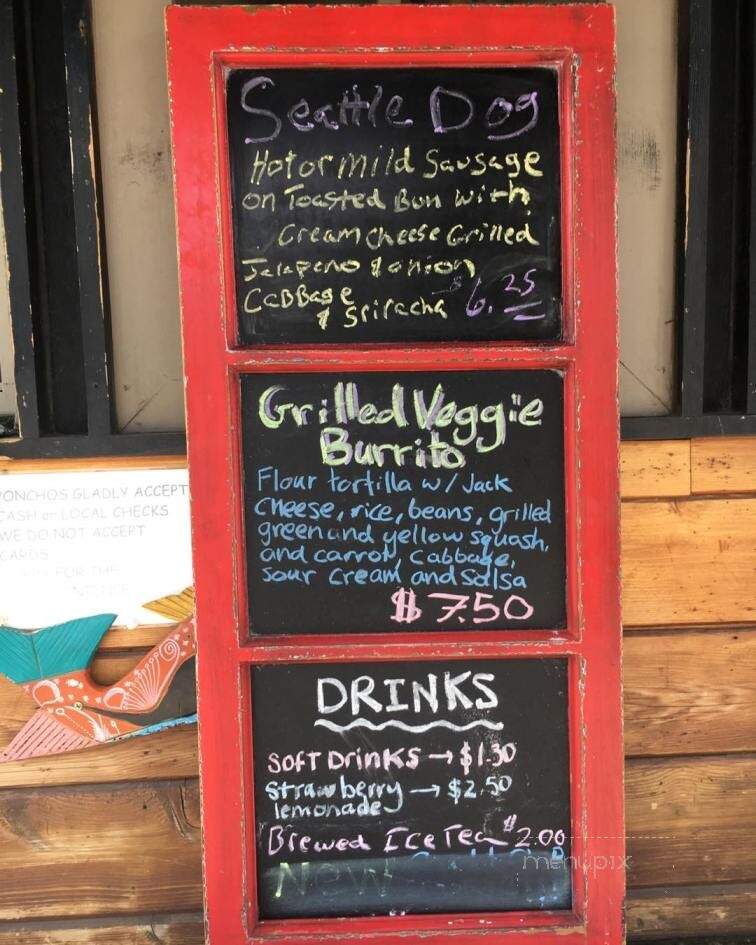 Seattle Dog
Hot or mild Sausage
on Toasted Bun with
Cream cheese Grilled
Jalapeno & onion
Cabbage
& Sriracha 6.25
Grilled Veggie
Burrito
Flour tortilla w/ Jack
Cheese, rice, beans, grilled
green and yellow squash,
and carrot, cabbage,
sour cream and salsa
$7.50
DRINKS
SOFT DrinKS → $1.50
Strawberry → $2.50
lemonade
Brewed Ice Tea $2.00
New
PONCHOS GLADLY ACCEPT
CASH or LOCAL CHECKS
WE DO NOT ACCEPT
CARDS
FOR THE
menupix